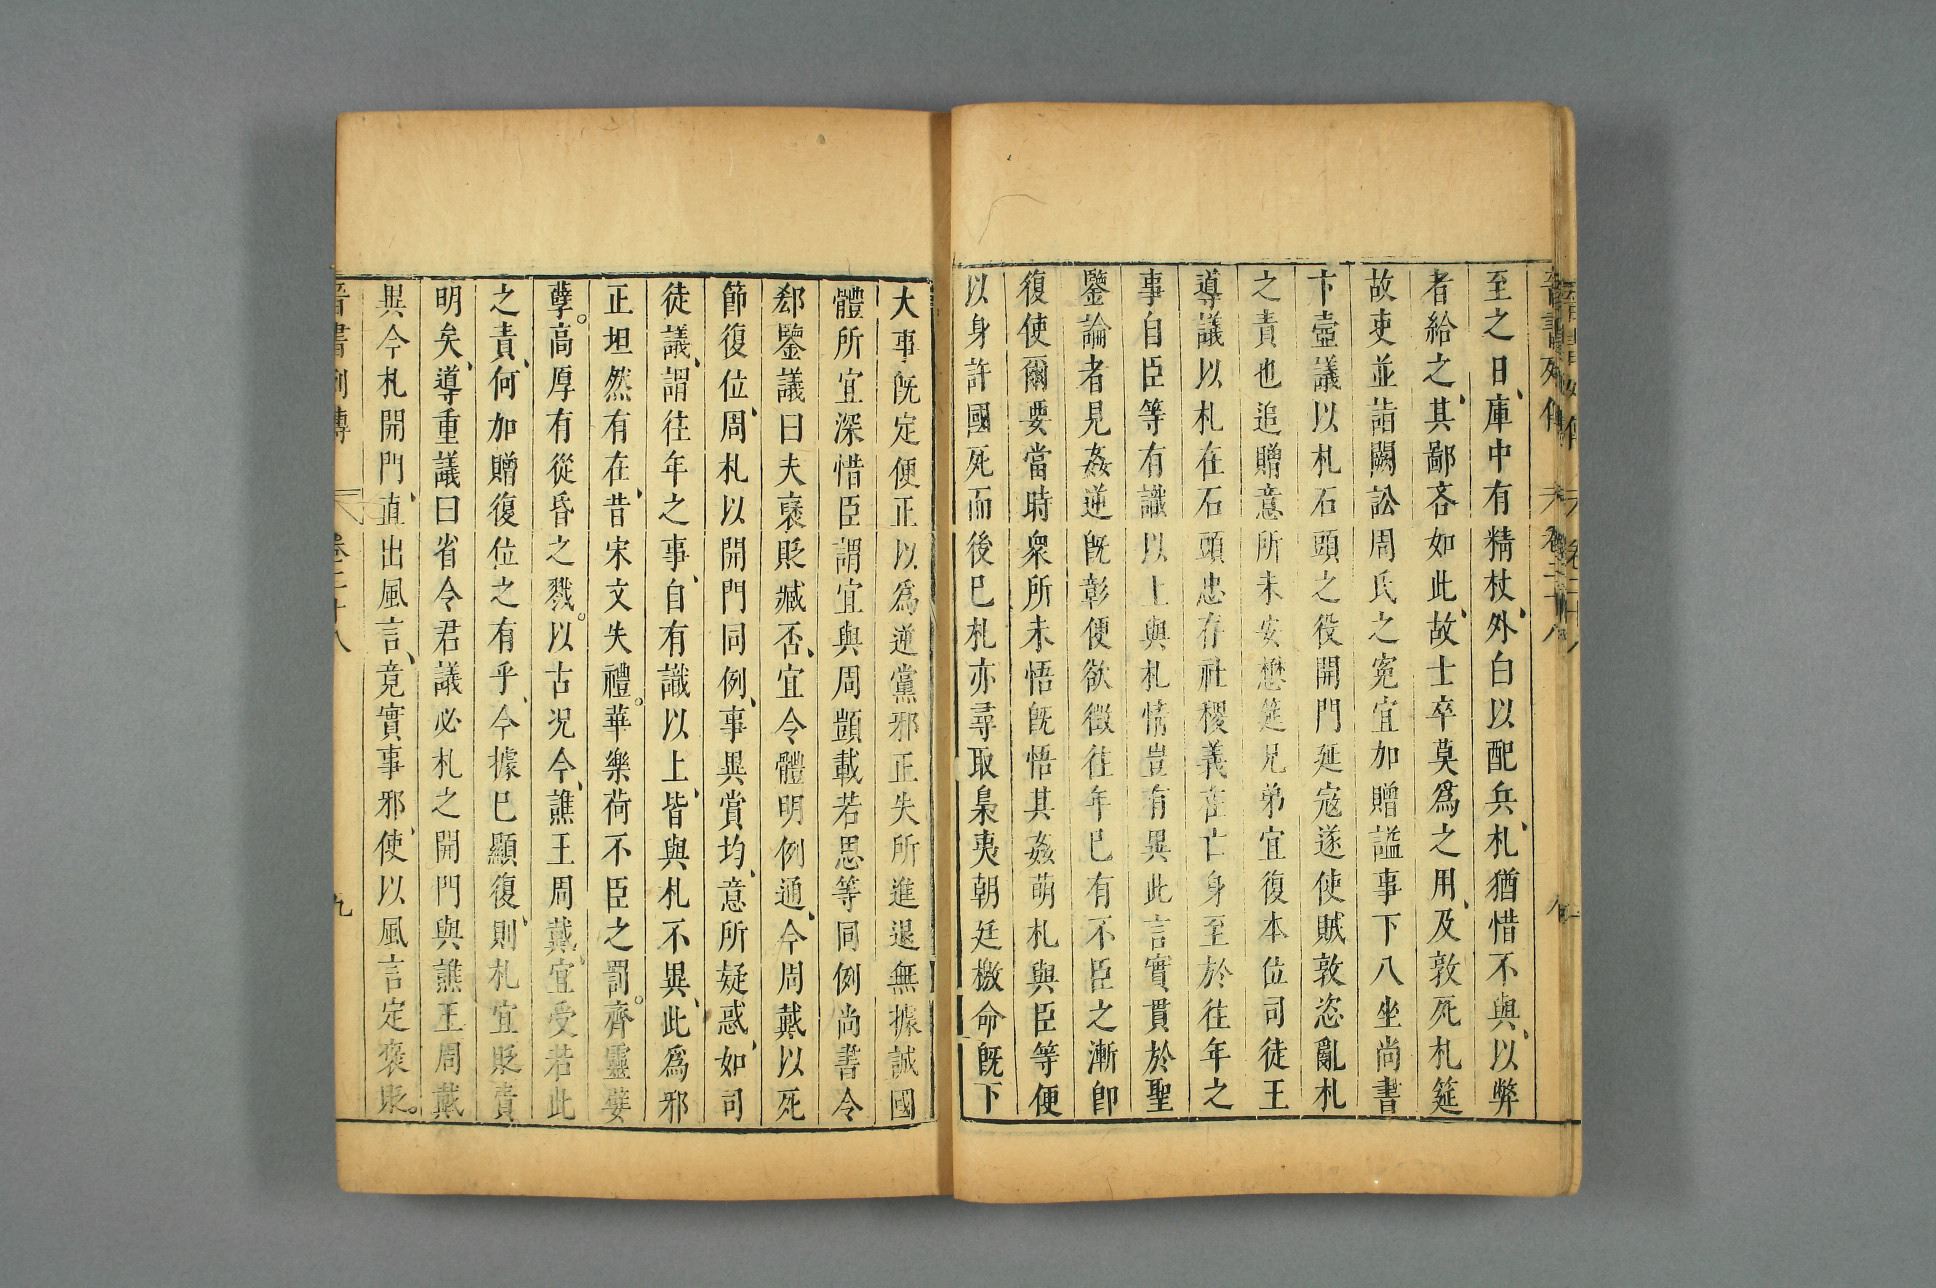 至之日、庫中有精杖、外白以配兵、札猶惜不與、以弊
者給之、其鄙吝如此、故士卒莫爲之用、及敦死札筵
故吏並詣闕訟周氏之寃宜加贈謚事下八坐尚書
卞壼議以札石頭之役開門延寇遂使賊敦恣亂札
之責也追贈意所未安懋筵兄弟宜復本位司徒王
導議以札在石頭忠存社稷義在亡身至於往年之
事自臣等有識以上與札情豈有異此言實貫於聖
鑒論者見姦逆旣彰便欲徵往年已有不臣之漸卽
復使爾要當時衆所未悟旣悟其姦萌札與臣等便
以身許國死而後已札亦尋取梟夷朝廷檄命旣下
大事旣定便正以爲逆黨邪正失所進退無據誠國
體所宜深惜臣謂宜與周顗戴若思等同例尚書令
郄鑒議曰夫襃貶臧否、宜令體明例通、今周戴以死
節復位、周札以開門同例、事異賞均、意所疑惑、如司
徒議、謂往年之事、自有識以上、皆與札不異、此爲邪
正坦然有在、昔宋文失禮。華樂荷不臣之罰。齊靈嬖
孽。高厚有從昏之戮。以古况今、譙王周戴、宜受若此
之責、何加贈復位之有乎、今據已顯復、則札宜貶責
明矣、導重議曰省令君議必札之開門與譙王周戴
異今札開門、直出風言、竟實事邪、使以風言定褒貶。
晋書列傳 卷二十八 九